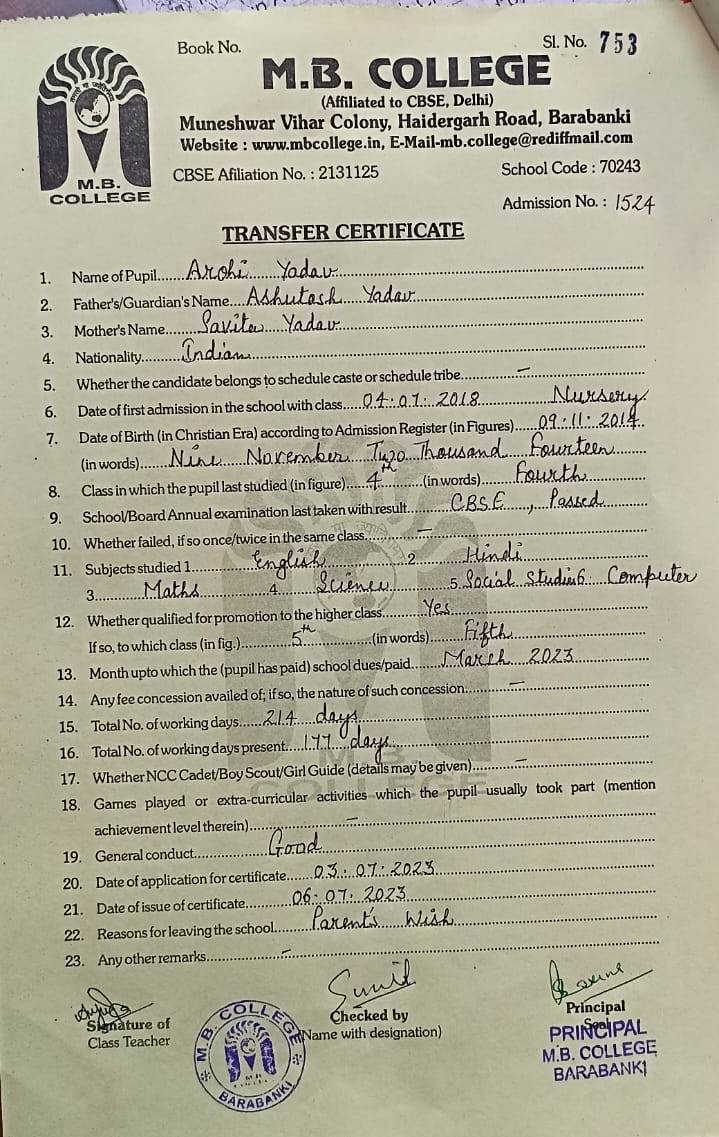 Book No.
Sl. No. 753
M.B. COLLEGE
(Affiliated to CBSE, Delhi)
Muneshwar Vihar Colony, Haidergarh Road, Barabanki
Website : www.mbcollege.in, E-Mail-mb.college@rediffmail.com
CBSE Afiliation No. : 2131125
School Code : 70243
M.B.
COLLEGE
Admission No. : 1524
TRANSFER CERTIFICATE
1. Name of Pupil......Arohi Yadav
2. Father's/Guardian's Name....Ashutosh Yadav
3. Mother's Name.......Savita Yadav
4. Nationality.........Indian
5. Whether the candidate belongs to schedule caste or schedule tribe. —
6. Date of first admission in the school with class....04.07.2018 Nursery
7. Date of Birth (in Christian Era) according to Admission Register (in Figures).....09.11.2014
(in words)......Nine November Two Thousand Fourteen
8. Class in which the pupil last studied (in figure).....4th.....(in words).....Fourth
9. School/Board Annual examination last taken with result........CBSE, Passed
10. Whether failed, if so once/twice in the same class. —
11. Subjects studied 1............English............2..........Hindi
3..........Maths..........4........Science..........5. Social Studies 6. Computer
12. Whether qualified for promotion to the higher class.......Yes
If so, to which class (in fig.)............5th............(in words)......Fifth
13. Month upto which the (pupil has paid) school dues/paid......March 2023
14. Any fee concession availed of; if so, the nature of such concession. —
15. Total No. of working days.....214 days
16. Total No. of working days present....177 days
17. Whether NCC Cadet/Boy Scout/Girl Guide (details may be given). —
18. Games played or extra-curricular activities which the pupil usually took part (mention
achievement level therein). —
19. General conduct..............Good
20. Date of application for certificate.....03.07.2023
21. Date of issue of certificate..........06.07.2023
22. Reasons for leaving the school.......Parent's Wish
23. Any other remarks. —
Sunil
Signature of
Class Teacher
Checked by
(Name with designation)
Principal
Seal
PRINCIPAL
M.B. COLLEGE
BARABANKI
M.B. COLLEGE
BARABANKI